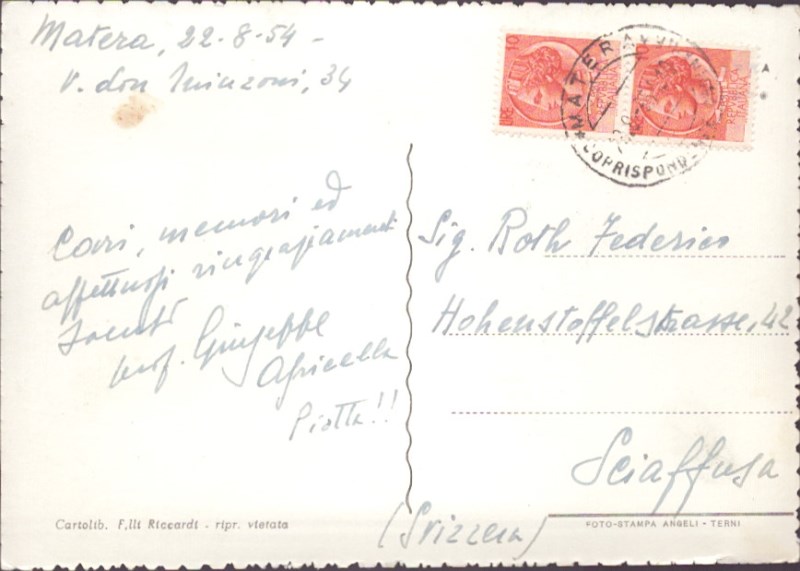 Matera, 22-8-54 -
V. don Minzoni, 34
Cari, memori ed
affettuosi ringraziamenti
prof. Giuseppe
Piotta!!
MATERA
CORRISPONDENZE
REPUBBLICA
ITALIANA
Sig. Roth Federico
Hohenstoffelstrasse, 42
Sciaffusa
(Svizzera)
Cartolib. F.lli Riccardi - ripr. vietata
FOTO-STAMPA ANGELI - TERNI